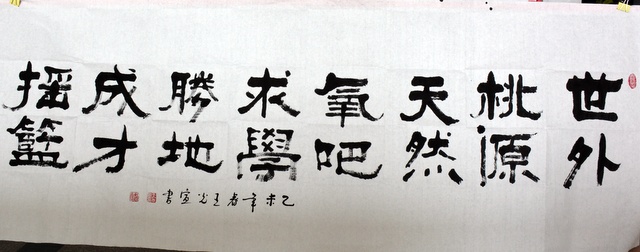 世外
桃源
天然
氧吧
求學
勝地
成才
摇籃
乙未年春王光宣書